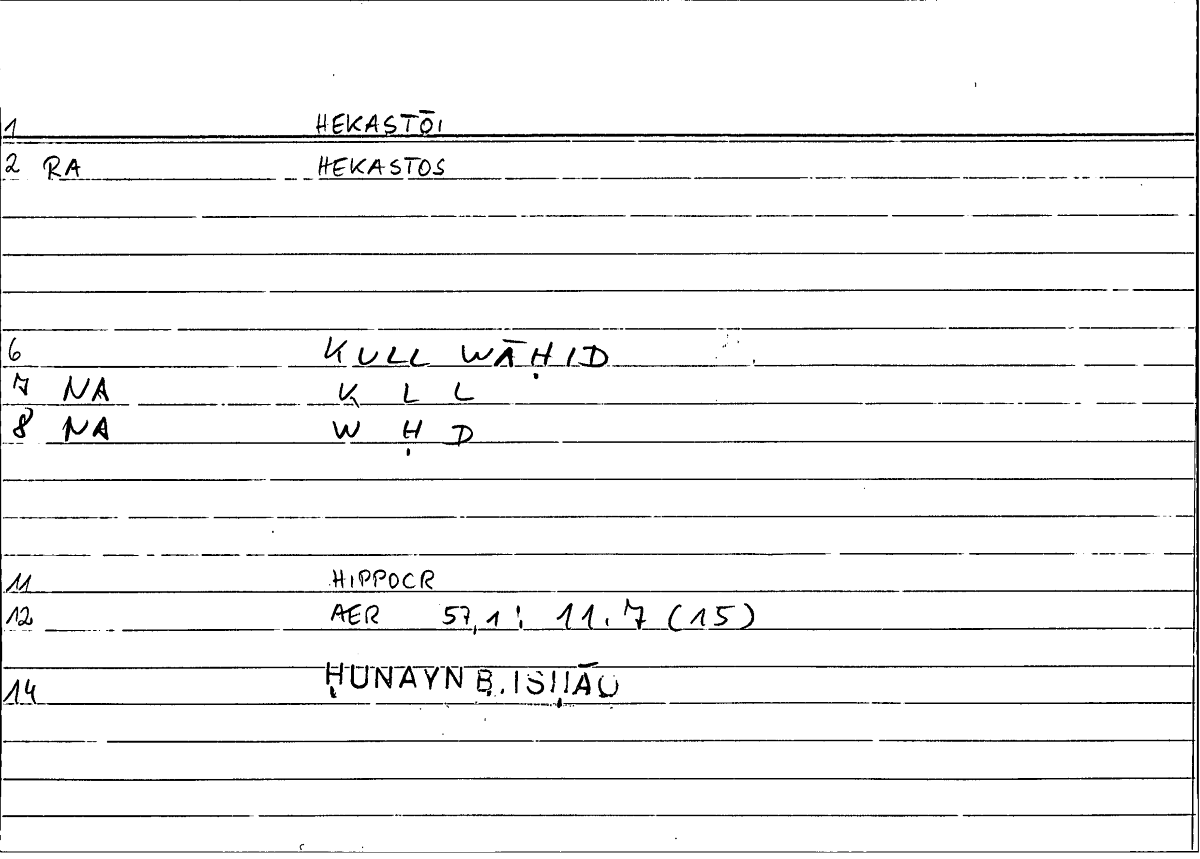 1 HEKASTŌI
2 RA HEKASTOS
6 KULL WĀḤID
7 NA K L L
8 NA W Ḥ D
11 HIPPOCR
12 AER 57,1: 11.7 (15)
14 ḤUNAYN B. ISḤĀQ